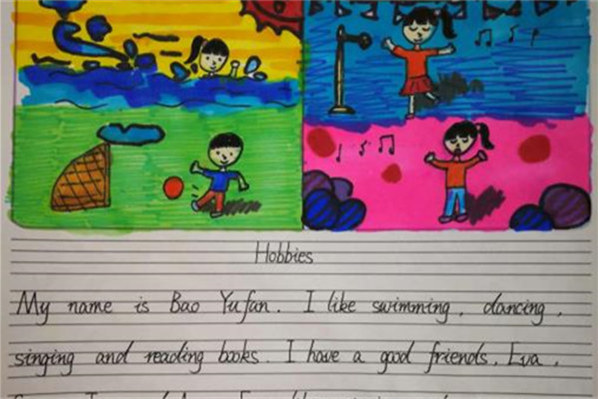 Hobbies
My name is Bao Yufan. I like swimming, dancing,
singing and reading books. I have a good friends, Eva,